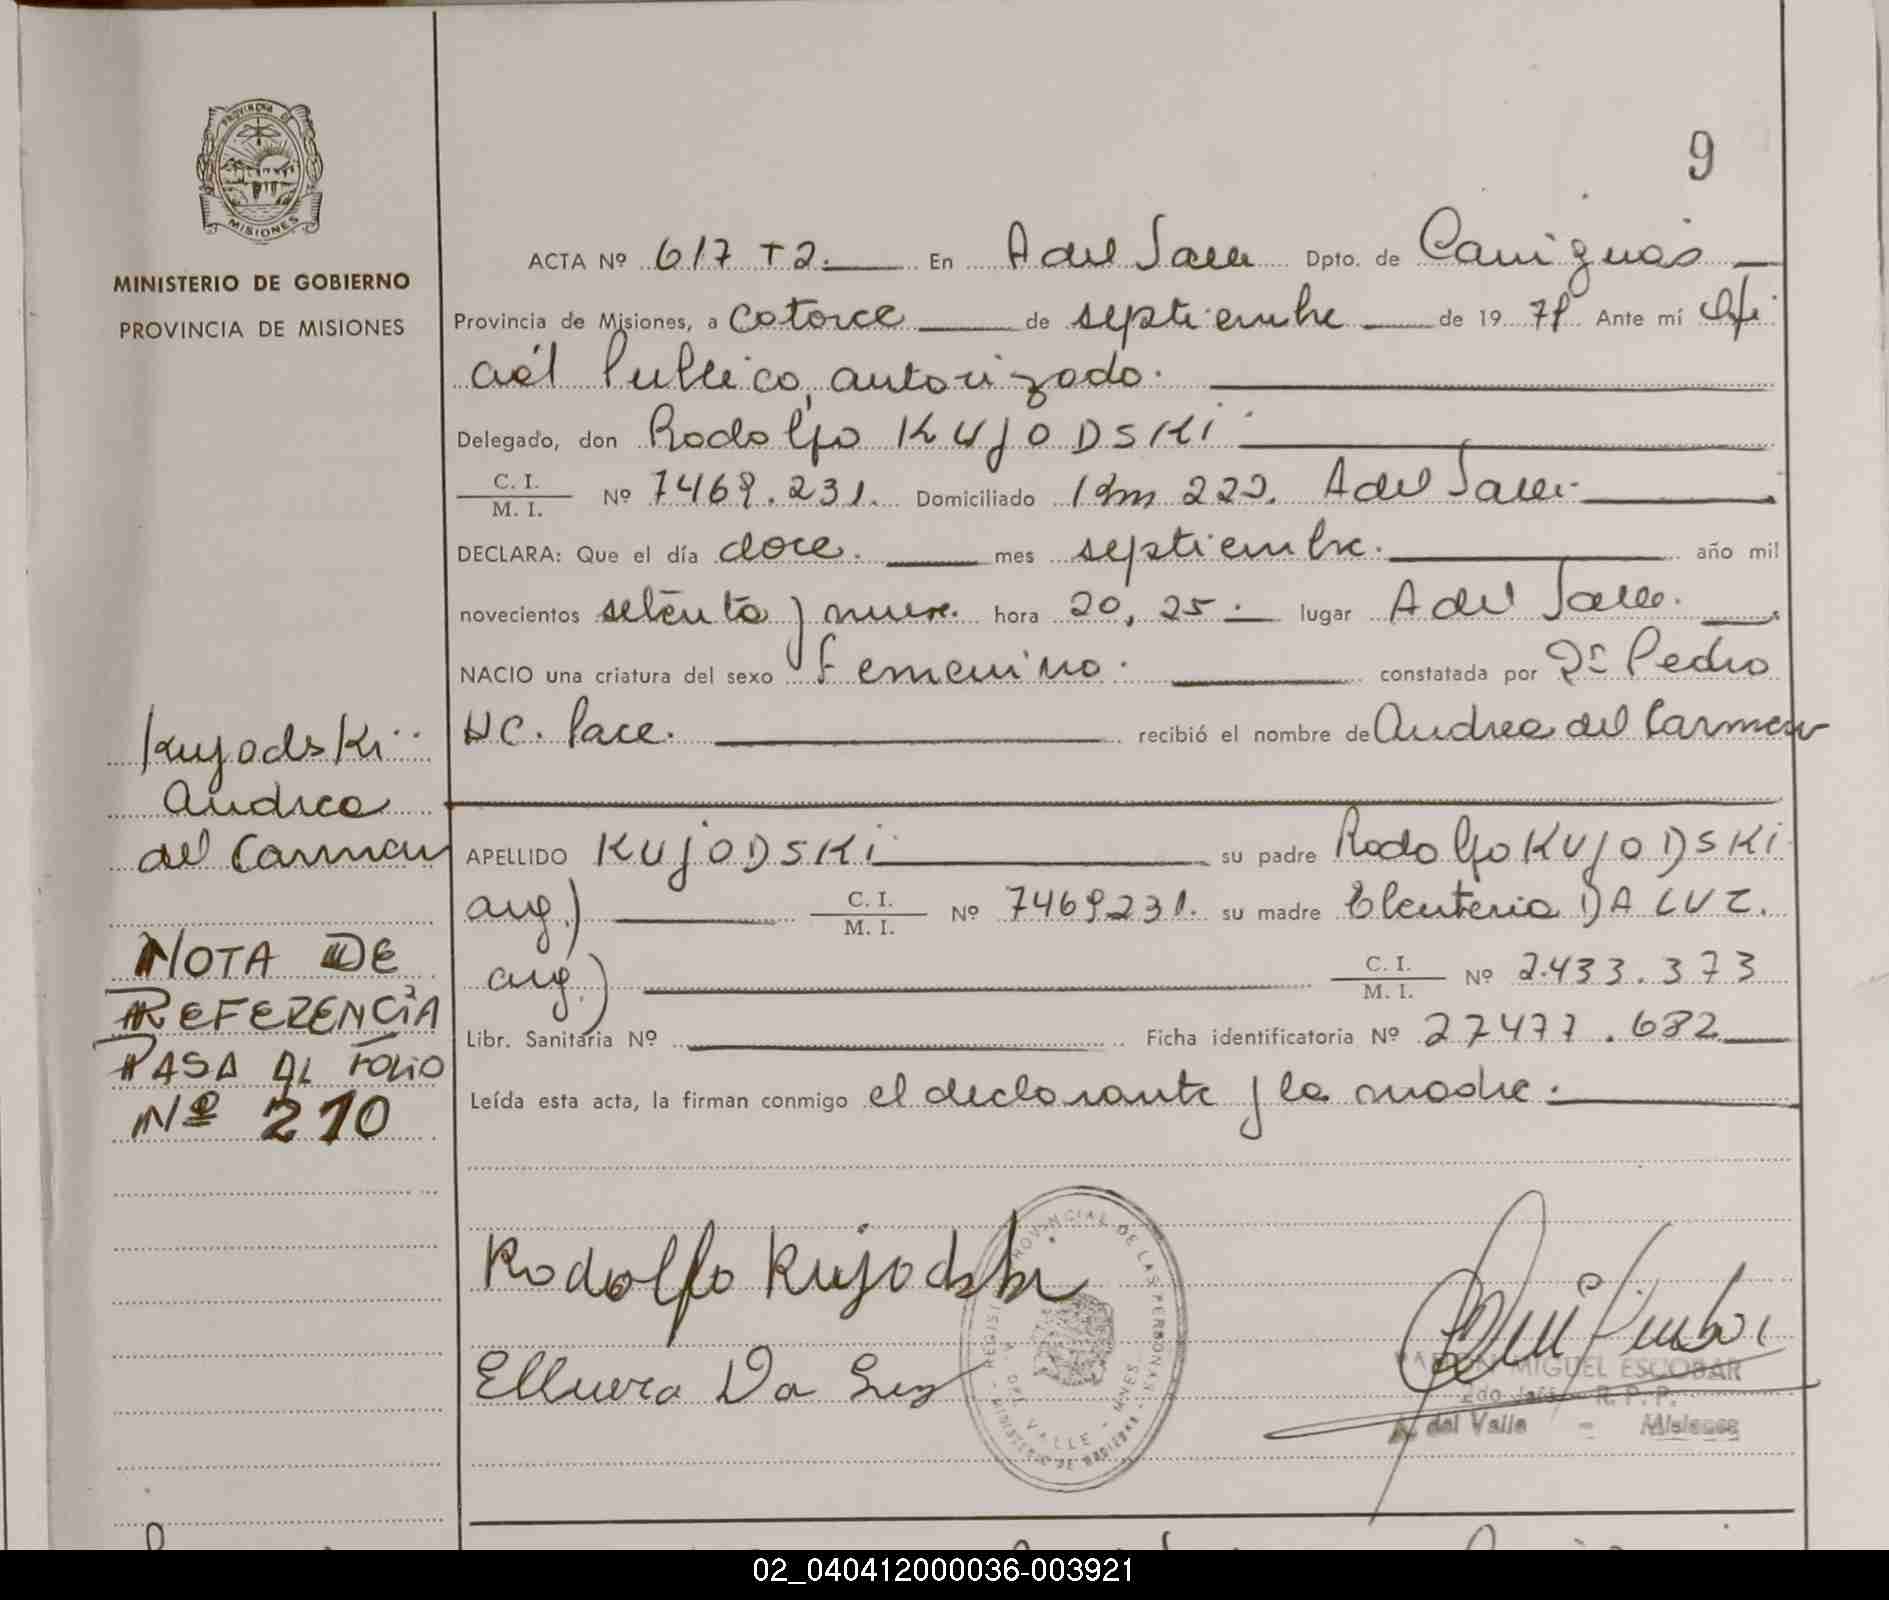 PROVINCIA DE
MISIONES
MINISTERIO DE GOBIERNO
PROVINCIA DE MISIONES
9
ACTA Nº 617 T2. En A del Valle Dpto. de Cainguás
Provincia de Misiones, a catorce de septiembre de 1979 Ante mí Ofi
cial Publico, autorizado.
Delegado, don Rodolfo KUJODSKI
C. I.
M. I. Nº 7469.231. Domiciliado Km 222. A del Valle.
DECLARA: Que el día doce. mes septiembre. año mil
novecientos setenta y nueve. hora 20,25. lugar A del Valle.
NACIO una criatura del sexo femenino. constatada por Dr Pedro
HC. Pace. recibió el nombre de Andrea del Carmen
APELLIDO KUJODSKI su padre Rodolfo KUJODSKI
arg.) C. I.
M. I. Nº 7469231. su madre Eleuteria DA LUZ.
arg.) C. I.
M. I. Nº 2.433.373
Libr. Sanitaria Nº Ficha identificatoria Nº 27477.682
Leída esta acta, la firman conmigo el declarante y la madre.
Kujodski
Andrea
del Carmen
NOTA DE
REFERENCIA
PASA AL FOLIO
Nº 210
Rodolfo Kujodski
Da Luz
REGISTRO PROVINCIAL DE LAS PERSONAS
A. DEL VALLE - MNES
MINISTERIO DE GOBIERNO
RAMON MIGUEL ESCOBAR
2do Jefe R. P. P.
A. del Valle - Misiones
02_040412000036-003921